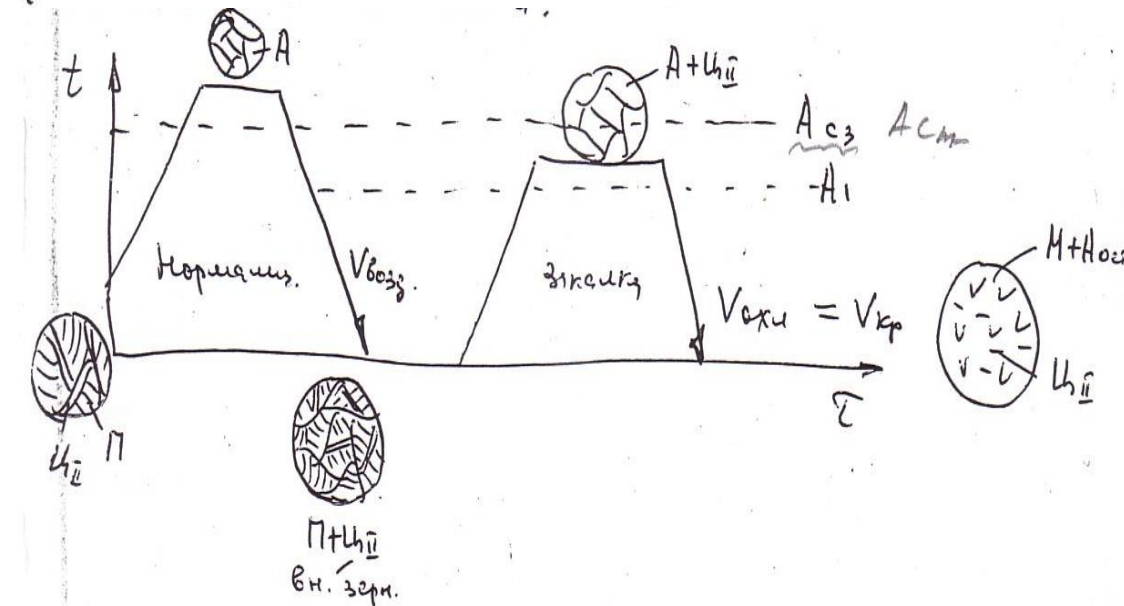 А
t
А+ЦII
Ас3 Асm
А1
Нормализ.
Vвозд.
Закалка
Vохл = Vкр
М+Аост
ЦII
τ
ЦII П
П+ЦII
вн. зерн.